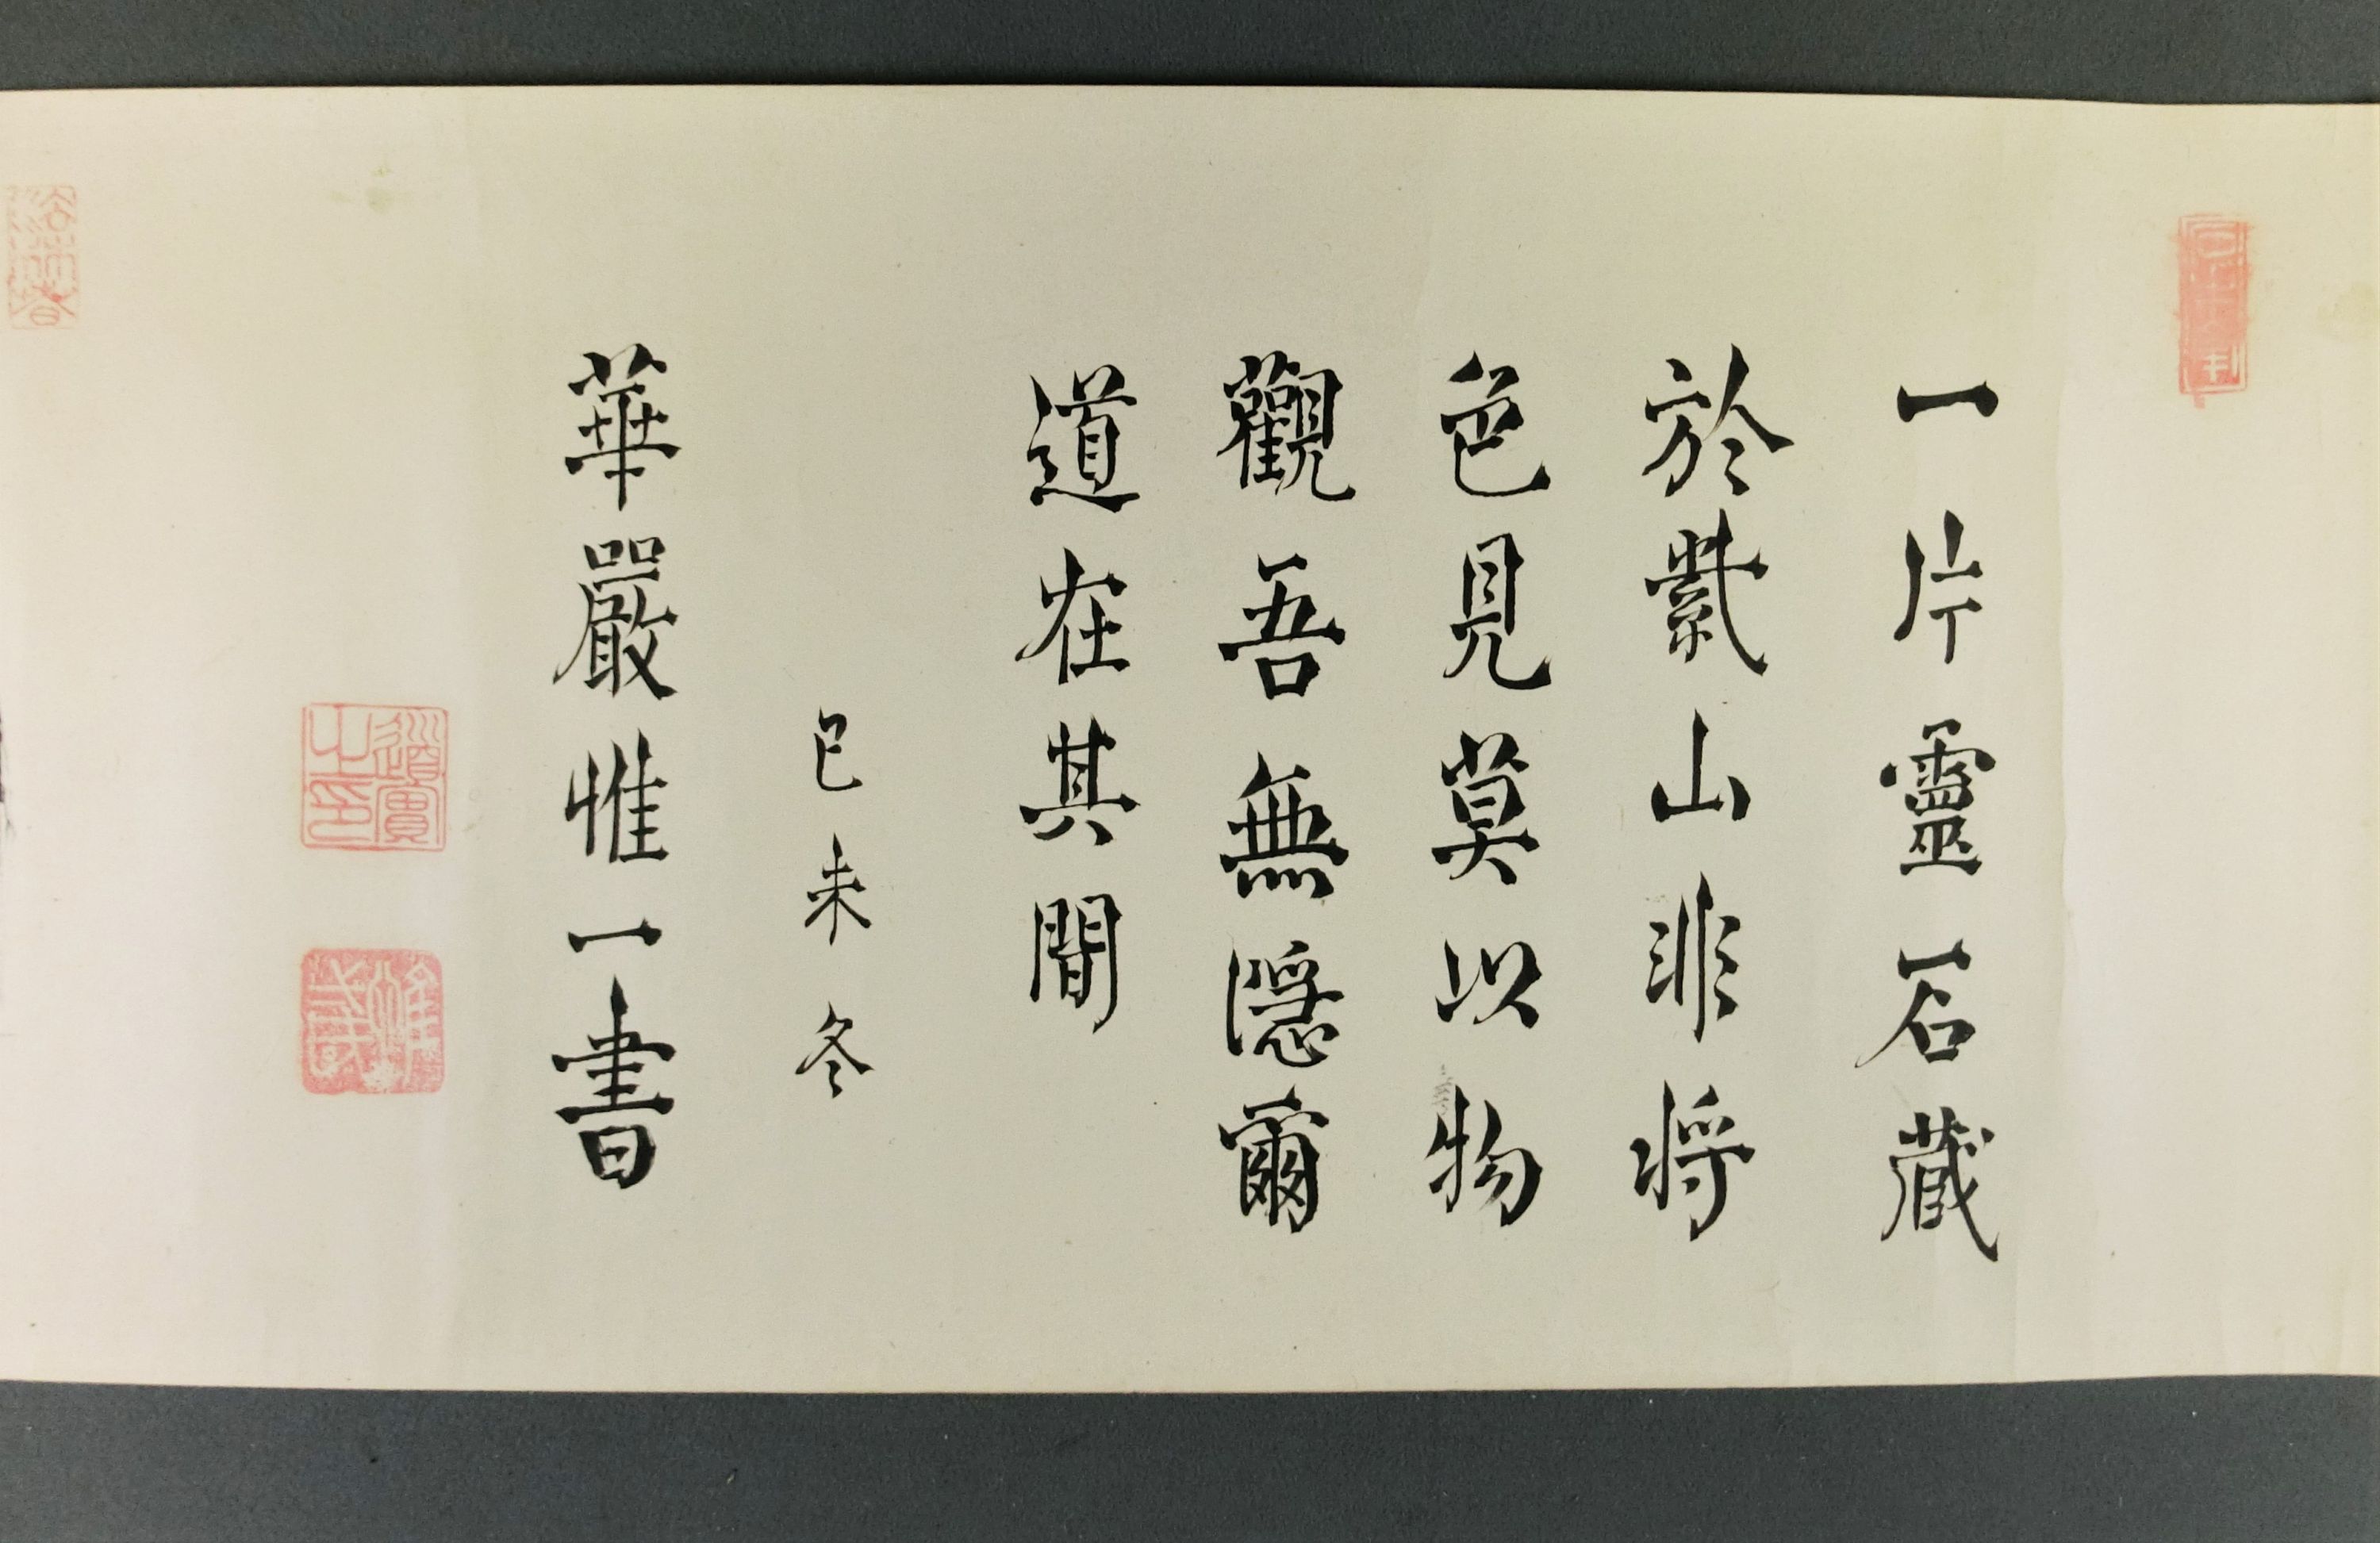 一片靈石藏
於紫山非將
色見莫以物
觀吾無隱爾
道在其間
已未冬
華嚴惟一書
道實之印